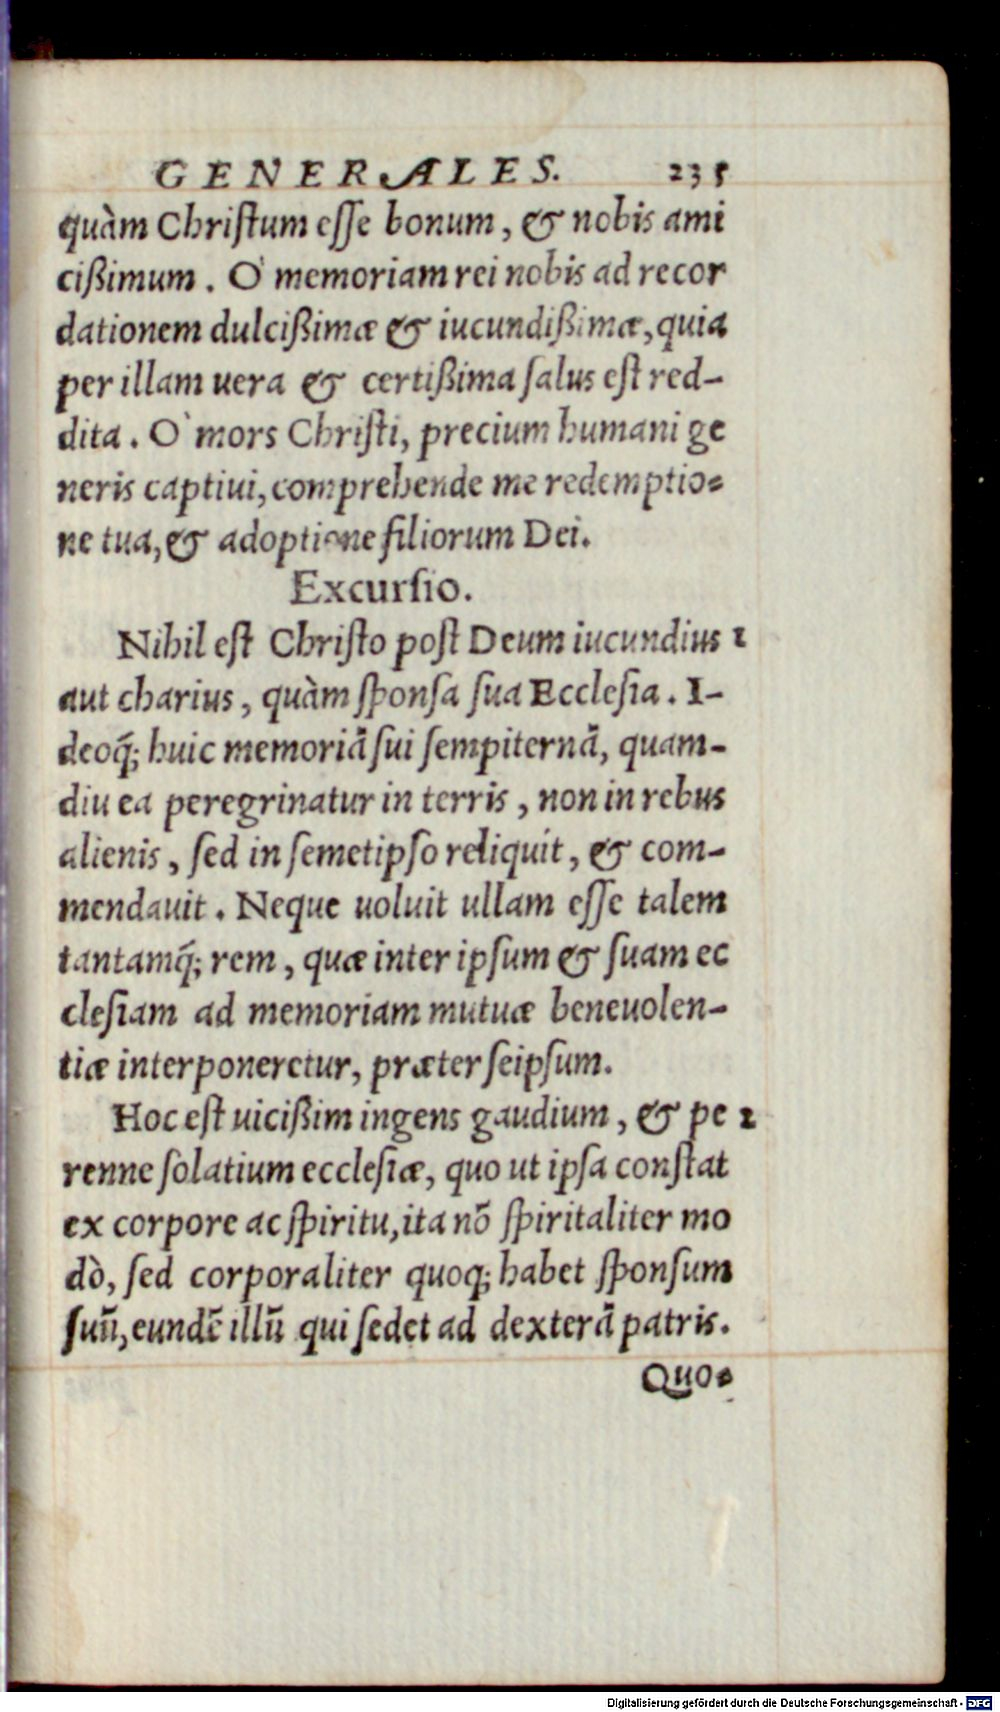 GENERALES. 235
quàm Chriſtum eſſe bonum, & nobis ami
cißimum. O' memoriam rei nobis ad recor
dationem dulcißimæ & iucundißimæ, quia
per illam uera & certißima ſalus eſt red-
dita. O' mors Chriſti, precium humani ge
neris captiui, comprehende me redemptio-
ne tua, & adoptione filiorum Dei.
Excurſio.
Nihil eſt Chriſto poſt Deum iucundius 1
aut charius, quàm ſponſa ſua Eccleſia. I-
deoq́; huic memoriā ſui ſempiternā, quam-
diu ea peregrinatur in terris, non in rebus
alienis, ſed in ſemetipſo reliquit, & com-
mendauit. Neque uoluit ullam eſſe talem
tantamq́; rem, quæ inter ipſum & ſuam ec
cleſiam ad memoriam mutuæ beneuolen-
tiæ interponeretur, præter ſeipſum.
Hoc eſt uicißim ingens gaudium, & pe 2
renne ſolatium eccleſiæ, quo ut ipſa conſtat
ex corpore ac ſpiritu, ita nō ſpiritaliter mo
dò, ſed corporaliter quoq; habet ſponſum
ſuū, eundē illū qui ſedet ad dexterā patris.
Quo-
Digitalisierung gefördert durch die Deutsche Forschungsgemeinschaft - DFG